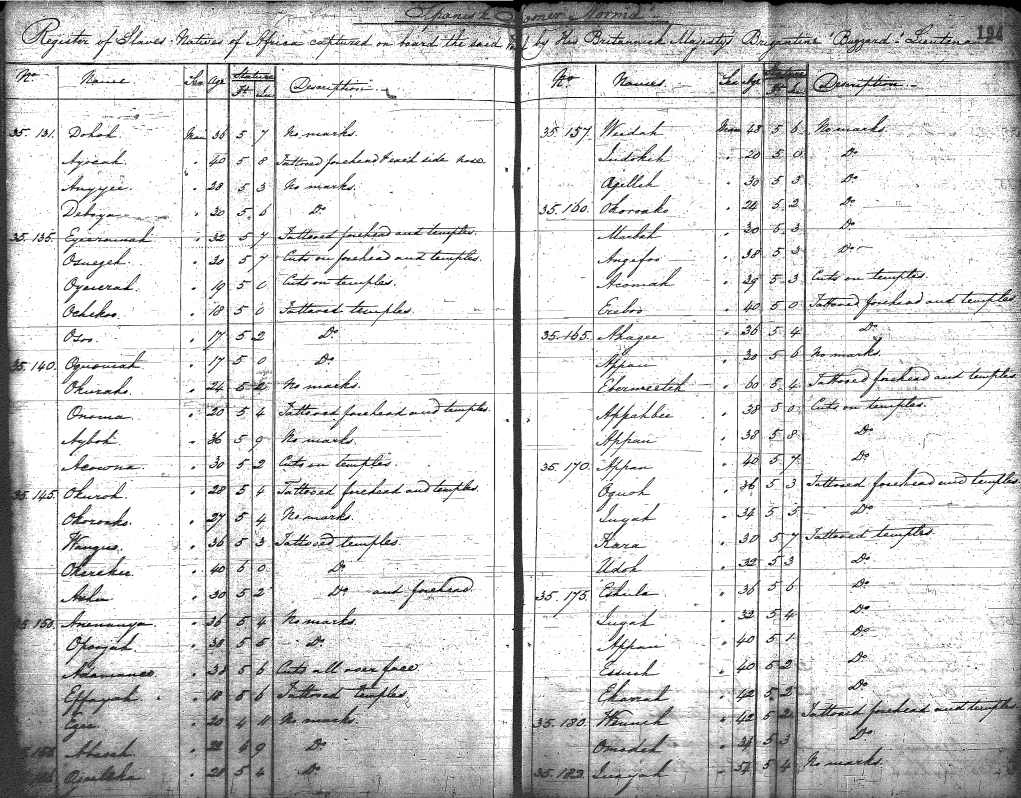 Spanish "Norma"
Register of Slaves Natives of Africa captured on board the said by Her Britannick Majesty's Brigantine "Buzzard" Lieutenant
194
No. Name Sex Age Stature Ft. In. Description
35.131. Dohoh Man 36 5 7 No marks.
Ajoeah " 40 5 8 Tattooed forehead & each side nose.
Angyee " 28 5 3 No marks.
Deboya " 30 5 6 Do
35.135. " 32 5 7 Tattooed forehead and temples.
Osuegeh " 30 5 7 Cuts on forehead and temples.
" 19 5 0 Cuts on temples.
Ochekoo " 18 5 0 Tattooed temples.
Osoo " 17 5 2 Do
35.140. " 17 5 0 Do
Okurah " 24 5 2 No marks.
Onoma " 20 5 4 Tattooed forehead and temples.
Ayboh " 36 5 9 No marks.
Acowna " 30 5 2 Cuts on temples.
35.145. Okuroh " 28 5 4 Tattooed forehead and temples.
Okoroako " 27 5 4 No marks.
Wangus " 36 5 3 Tattooed temples
Okerekee " 40 5 0 Do
" 30 5 2 Do and forehead
35.150. Anemanya " 36 5 4 No marks.
Opoojah " 38 5 5 Do
Adamance " 38 5 6 Cuts all over face
Effayah " 18 5 6 Tattooed temples.
Ezee " 20 4 11 No marks.
" 22 4 9 Do
" 28 5 4 Do
No. Names Sex Age Stature Ft. In. Description
35.157. Weedah Man 28 5 6 No marks
Indokeh " 20 5 0 Do
Apelleh " 30 5 3 Do
35.160. Okoroako " 24 5 2 Do
Mabah " 30 5 3 Do
Angafoo " 38 5 3 Do
Acomah " 29 5 3 Cuts on temples.
Ereboo " 40 5 0 Tattooed forehead and temples.
35.165. Ahagee " 36 5 4 Do
Appau " 30 5 6 No marks.
Ebermerteh " 60 5 4 Tattooed forehead and temples
Appahbee " 38 5 0 Cuts on temples.
Appau " 38 5 8 Do
35.170. Appau " 40 5 7 Do
Oguoh " 36 5 3 Tattooed forehead and temples
Inyah " 34 5 5 Do
Kara " 30 5 7 Tattooed temples.
Udoh " 32 5 3 Do
35.175. Eshela " 36 5 6 Do
Inyah " 32 5 4 Do
Appau " 40 5 1 Do
Essueh " 40 5 2 Do
Ekavah " 42 5 2 Do
35.180. Wenneh " 42 5 2 Tattooed forehead and temples.
Omedeh " 34 5 3 Do
35.182. " 54 5 4 No marks.